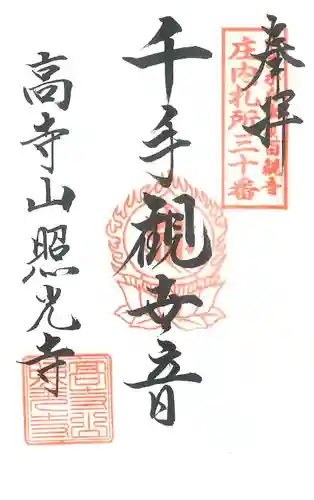 奉拝
庄内札所三十番
千手観世音
高寺山照光寺